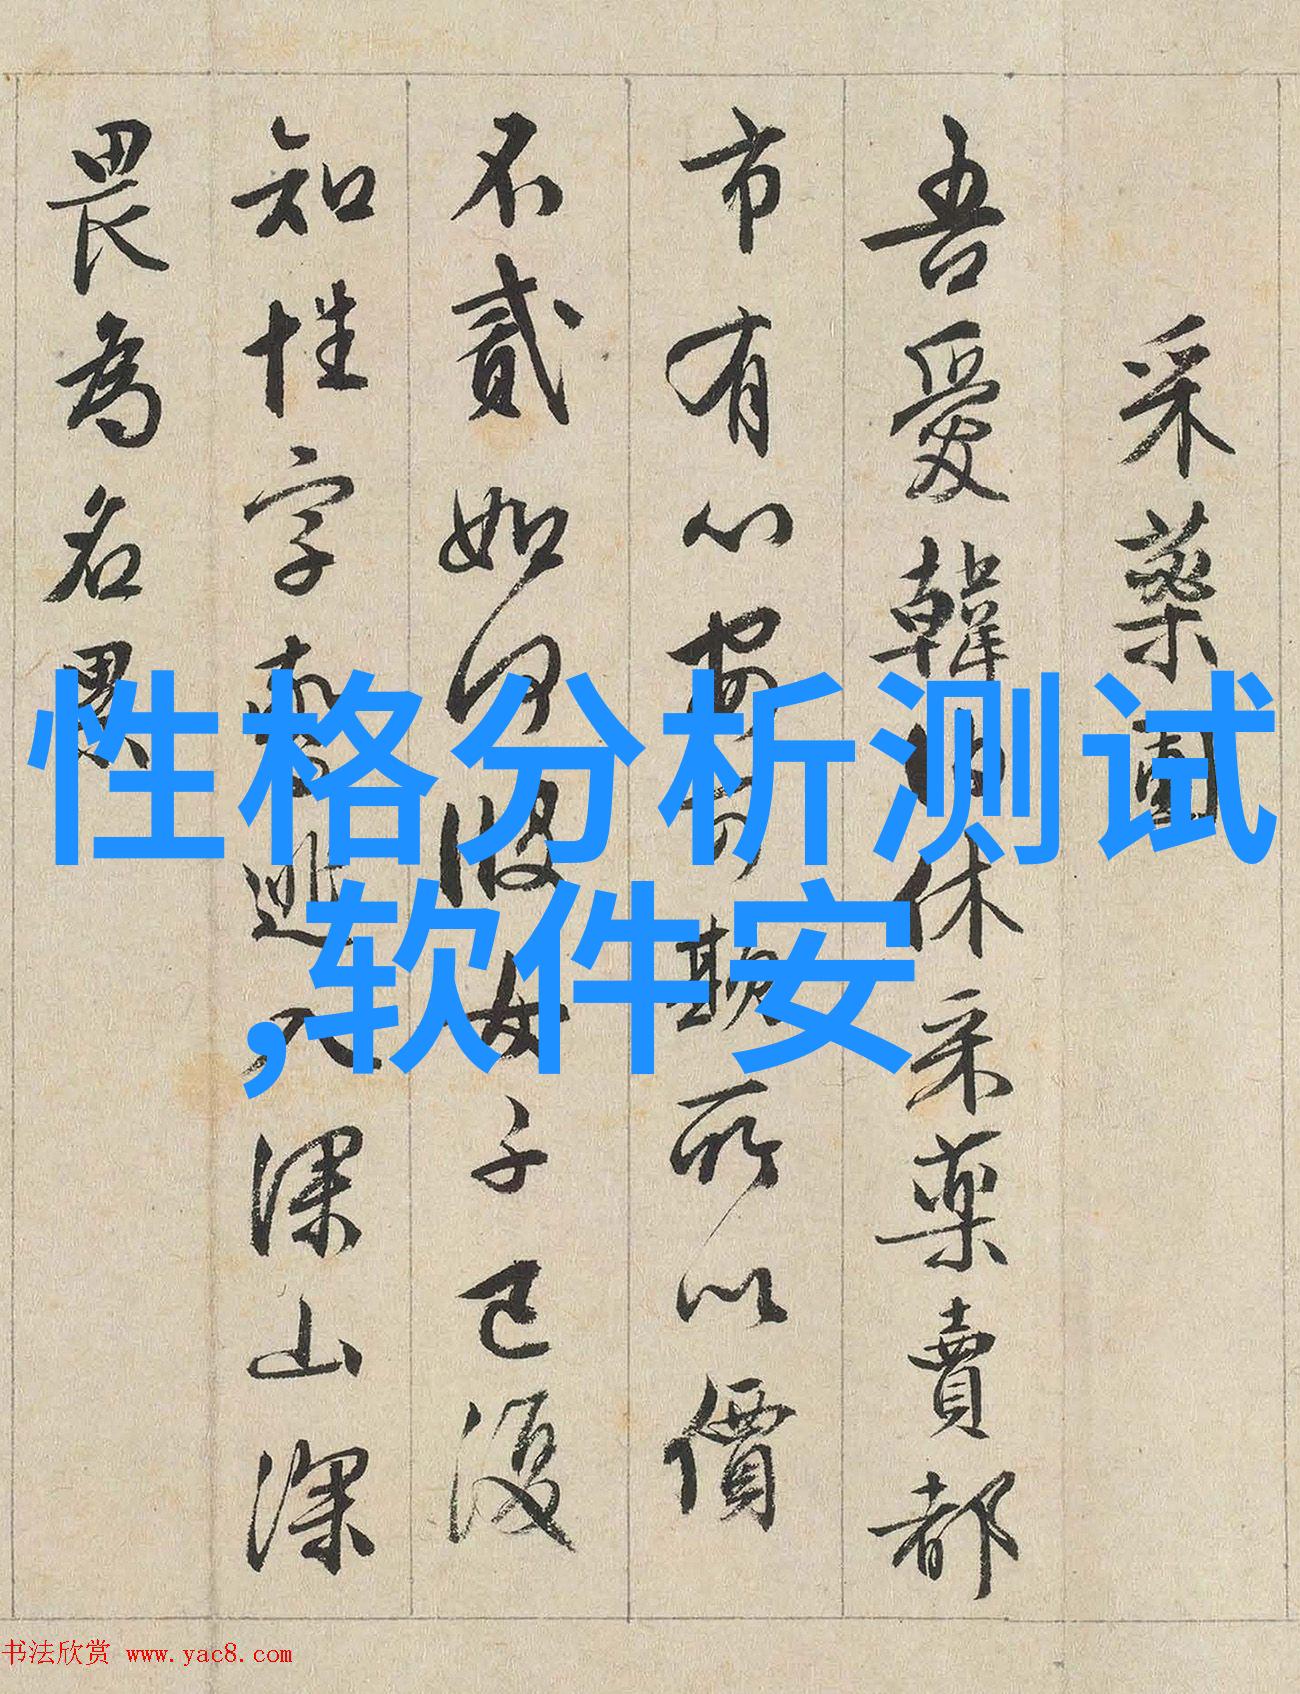 采藥園
吾愛韓伯休采藥賣都
市有心可欺所以價
不貳如何彼女子已復
知性字逃入深山深
畏為名累
性格分析测试
,软件安
书法欣赏 www.yac8.com